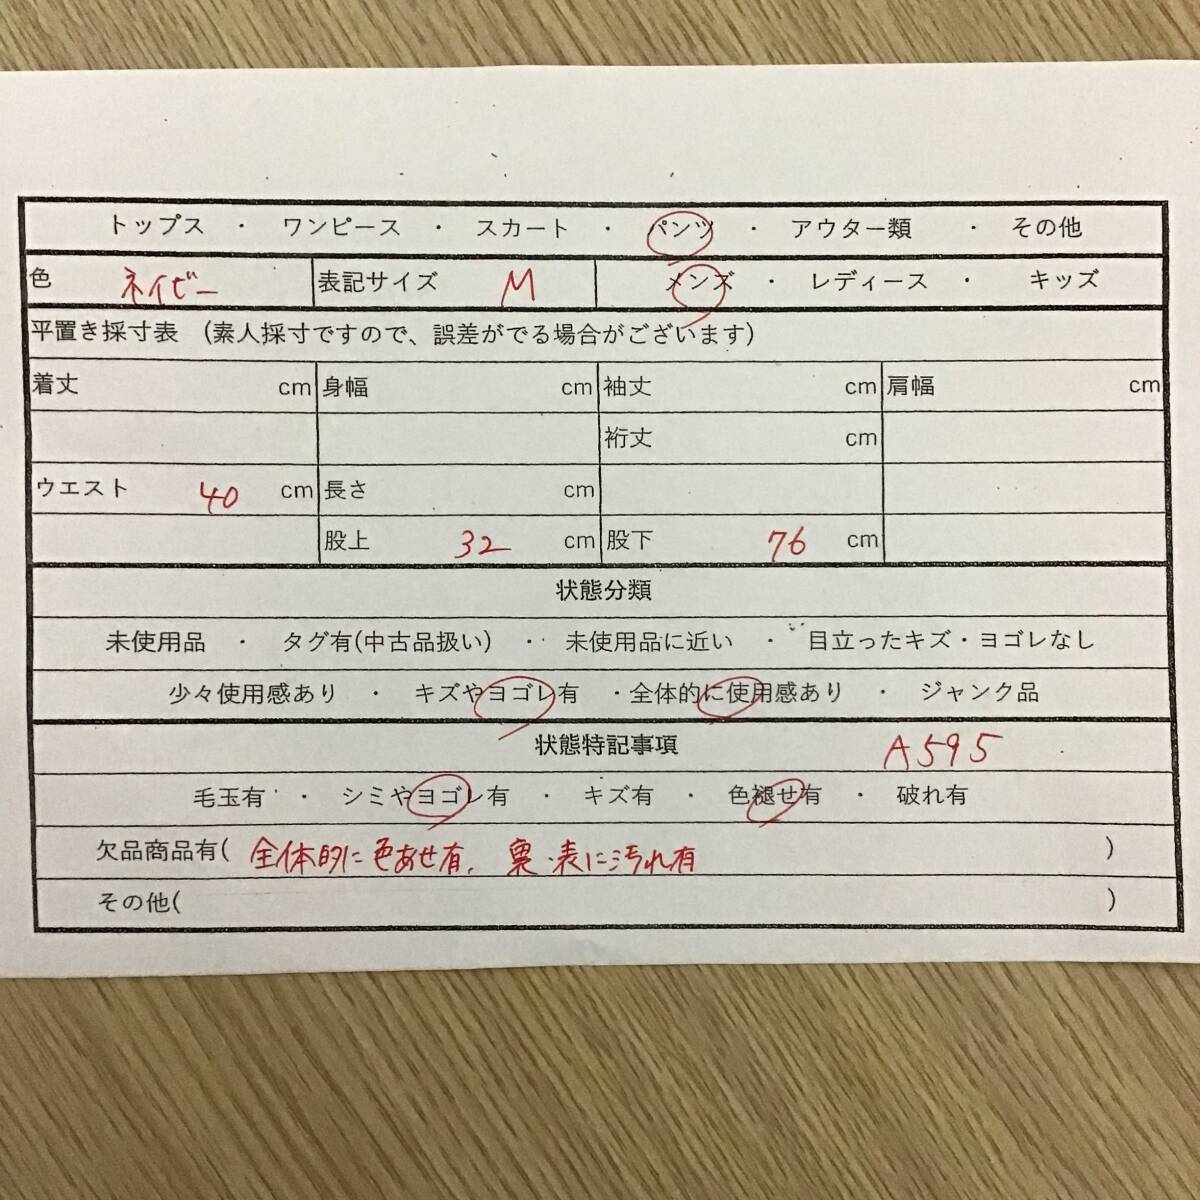 トップス ・ ワンピース ・ スカート ・ パンツ ・ アウター類 ・ その他
色 ネイビー 表記サイズ M メンズ ・ レディース ・ キッズ
平置き採寸表 (素人採寸ですので、誤差がでる場合がございます)
着丈 cm 身幅 cm 袖丈 cm 肩幅 cm
裄丈 cm
ウエスト 40 cm 長さ cm
股上 32 cm 股下 76 cm
状態分類
未使用品 ・ タグ有(中古品扱い) ・ 未使用品に近い ・ 目立ったキズ・ヨゴレなし
少々使用感あり ・ キズやヨゴレ有 ・全体的に使用感あり ・ ジャンク品
状態特記事項 A595
毛玉有 ・ シミやヨゴレ有 ・ キズ有 ・ 色褪せ有 ・ 破れ有
欠品商品有( 全体的に色あせ有、裏・表に汚れ有 )
その他( )